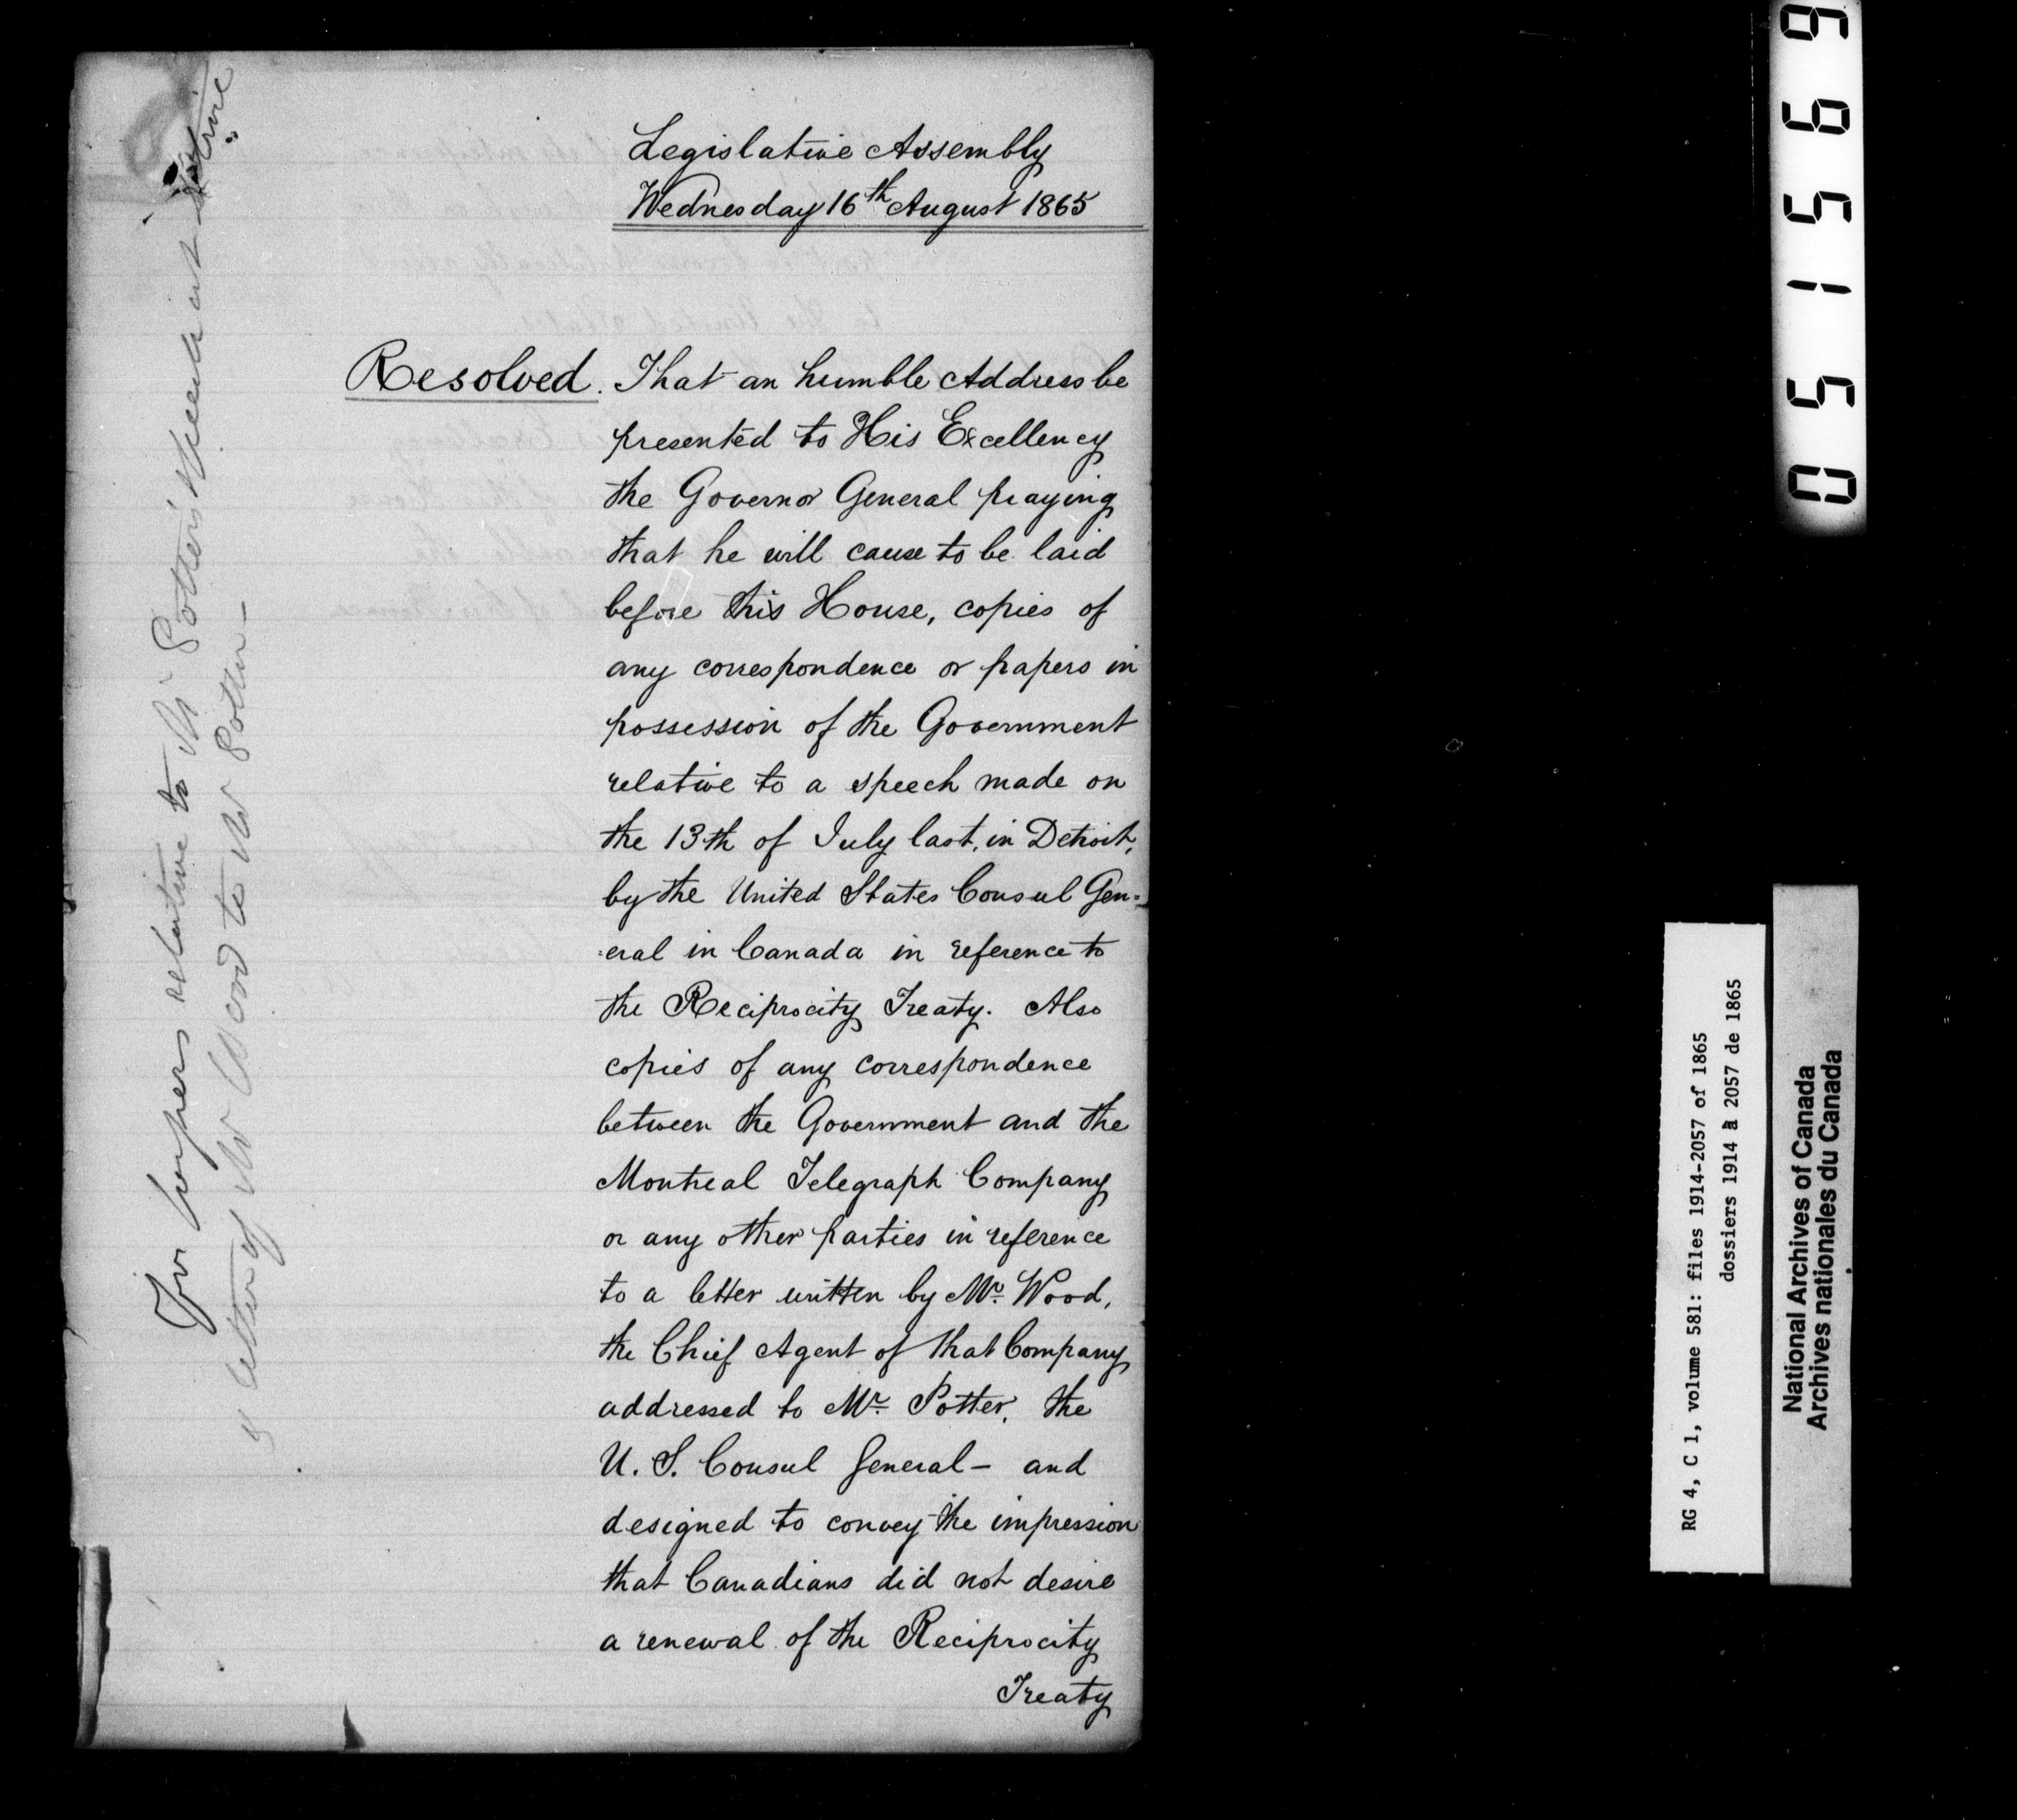 Legislative Assembly
Wednesday 16th August 1865
Resolved. That an humble Address be
presented to His Excellency
the Governor General praying
that he will cause to be laid
before this House, copies of
any correspondence or papers in
possession of the Government
relative to a speech made on
the 13th of July last, in Detroit,
by the United States Consul Gen=
=eral in Canada in reference to
the Reciprocity Treaty. Also
copies of any correspondence
between the Government and the
Montreal Telegraph Company
or any other parties in reference
to a letter written by Mr. Wood,
the Chief Agent of that Company
addressed to Mr. Potter, the
U. S. Consul General - and
designed to convey the impression
that Canadians did not desire
a renewal of the Reciprocity
Treaty
For papers relative to Mr Potter's speech at
& letter of Mr Wood to Mr Potter -
051566
RG 4, C 1, volume 581: files 1914-2057 of 1865
dossiers 1914 à 2057 de 1865
National Archives of Canada
Archives nationales du Canada